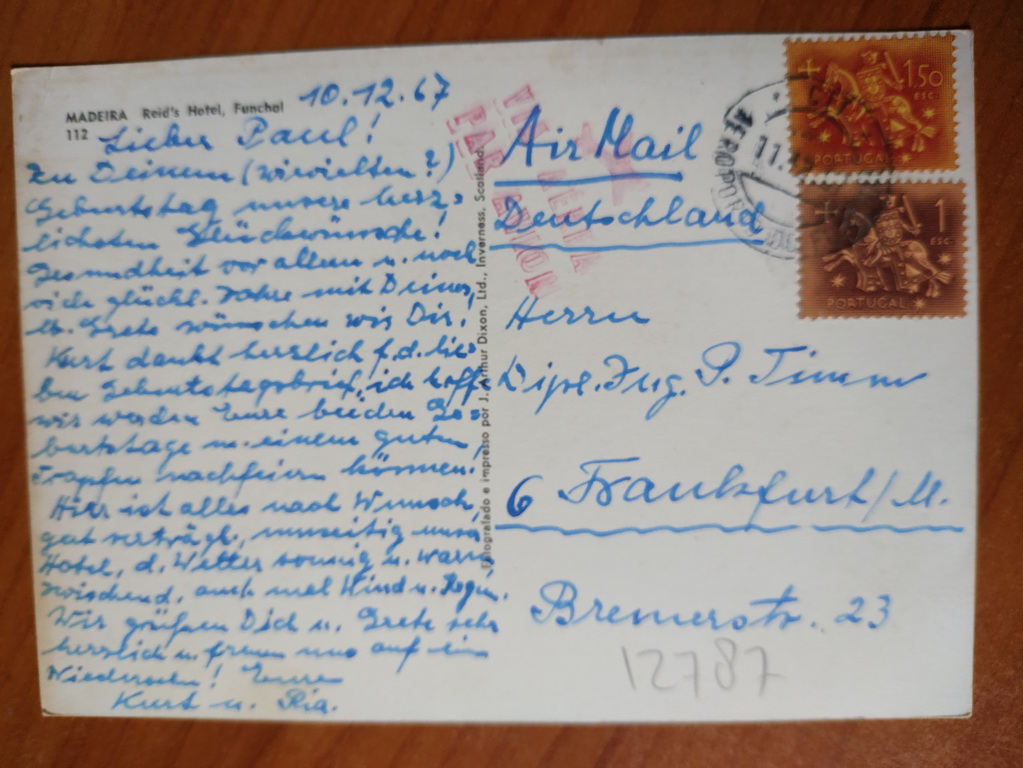 MADEIRA Reid's Hotel, Funchal
112
10.12.67
Lieber Paul!
Zu Deinem (wievielten?)
Geburtstag unsere herz-
lichsten Glückwünsche!
Gesundheit vor allem u. noch
viele glückl. Jahre mit Deiner
lb. Grete wünschen wir Dir!
Kurt dankt herzlich f. d. lie-
ben Geburtstagsbrief, ich hoffe
wir werden Eure beiden Ge-
burtstage m. einem guten
Tropfen nachfeiern können.
Hier ist alles nach Wunsch,
gut verträgl., unser
Hotel, d. Wetter sonnig u. warm
zwischend. auch mal Wind u. Regen.
Wir grüßen Dich u. Grete sehr
herzlich u. freuen uns auf ein
Wiedersehn! Eure
Kurt u. Ria.
Fotografado e impresso por J. Arthur Dixon, Ltd., Inverness, Scotland.
VIA AEREA
PAR AVION
Air Mail
Deutschland
Herrn
Dipl. Ing. P. Timm
6 Frankfurt/M.
Bremerstr. 23
12787
1$50
ESC.
PORTUGAL
1
ESC.
PORTUGAL
AEROPORTO